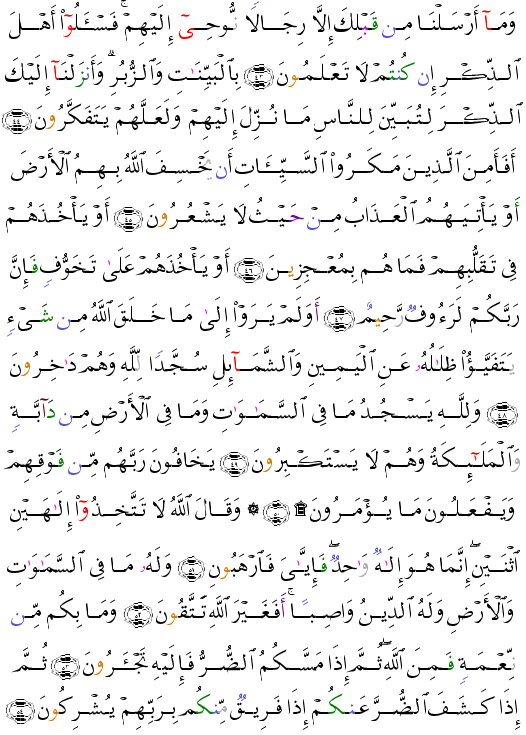 وَمَآ أَرْسَلْنَا مِن قَبْلِكَ إِلَّا رِجَالًا نُّوحِىٓ إِلَيْهِمْ ۚ فَسْـَٔلُوٓا۟ أَهْلَ
ٱلذِّكْرِ إِن كُنتُمْ لَا تَعْلَمُونَ ﴿٤٣﴾ بِٱلْبَيِّنَـٰتِ وَٱلزُّبُرِ ۗ وَأَنزَلْنَآ إِلَيْكَ
ٱلذِّكْرَ لِتُبَيِّنَ لِلنَّاسِ مَا نُزِّلَ إِلَيْهِمْ وَلَعَلَّهُمْ يَتَفَكَّرُونَ ﴿٤٤﴾
أَفَأَمِنَ ٱلَّذِينَ مَكَرُوا۟ ٱلسَّيِّـَٔاتِ أَن يَخْسِفَ ٱللَّهُ بِهِمُ ٱلْأَرْضَ
أَوْ يَأْتِيَهُمُ ٱلْعَذَابُ مِنْ حَيْثُ لَا يَشْعُرُونَ ﴿٤٥﴾ أَوْ يَأْخُذَهُمْ
فِى تَقَلُّبِهِمْ فَمَا هُم بِمُعْجِزِينَ ﴿٤٦﴾ أَوْ يَأْخُذَهُمْ عَلَىٰ تَخَوُّفٍ فَإِنَّ
رَبَّكُمْ لَرَءُوفٌ رَّحِيمٌ ﴿٤٧﴾ أَوَلَمْ يَرَوْا۟ إِلَىٰ مَا خَلَقَ ٱللَّهُ مِن شَىْءٍ
يَتَفَيَّؤُا۟ ظِلَـٰلُهُۥ عَنِ ٱلْيَمِينِ وَٱلشَّمَآئِلِ سُجَّدًا لِّلَّهِ وَهُمْ دَٰخِرُونَ
﴿٤٨﴾ وَلِلَّهِ يَسْجُدُ مَا فِى ٱلسَّمَـٰوَٰتِ وَمَا فِى ٱلْأَرْضِ مِن دَآبَّةٍ
وَٱلْمَلَـٰٓئِكَةُ وَهُمْ لَا يَسْتَكْبِرُونَ ﴿٤٩﴾ يَخَافُونَ رَبَّهُم مِّن فَوْقِهِمْ
وَيَفْعَلُونَ مَا يُؤْمَرُونَ ۩ ﴿٥٠﴾ ۞ وَقَالَ ٱللَّهُ لَا تَتَّخِذُوٓا۟ إِلَـٰهَيْنِ
ٱثْنَيْنِ ۖ إِنَّمَا هُوَ إِلَـٰهٌ وَٰحِدٌ ۖ فَإِيَّـٰىَ فَٱرْهَبُونِ ﴿٥١﴾ وَلَهُۥ مَا فِى ٱلسَّمَـٰوَٰتِ
وَٱلْأَرْضِ وَلَهُ ٱلدِّينُ وَاصِبًا ۚ أَفَغَيْرَ ٱللَّهِ تَتَّقُونَ ﴿٥٢﴾ وَمَا بِكُم مِّن
نِّعْمَةٍ فَمِنَ ٱللَّهِ ۖ ثُمَّ إِذَا مَسَّكُمُ ٱلضُّرُّ فَإِلَيْهِ تَجْـَٔرُونَ ﴿٥٣﴾ ثُمَّ
إِذَا كَشَفَ ٱلضُّرَّ عَنكُمْ إِذَا فَرِيقٌ مِّنكُم بِرَبِّهِمْ يُشْرِكُونَ ﴿٥٤﴾